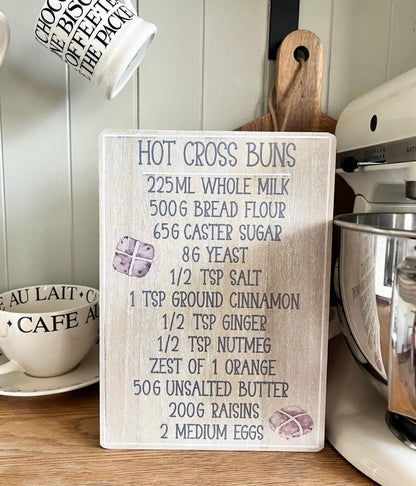 CHOC
NE BISC
COFFEE·T
THE PACKE
HOT CROSS BUNS
225ML WHOLE MILK
500G BREAD FLOUR
65G CASTER SUGAR
8G YEAST
1/2 TSP SALT
1 TSP GROUND CINNAMON
1/2 TSP GINGER
1/2 TSP NUTMEG
ZEST OF 1 ORANGE
50G UNSALTED BUTTER
200G RAISINS
2 MEDIUM EGGS
E AU LAIT · CA
CAFE AU